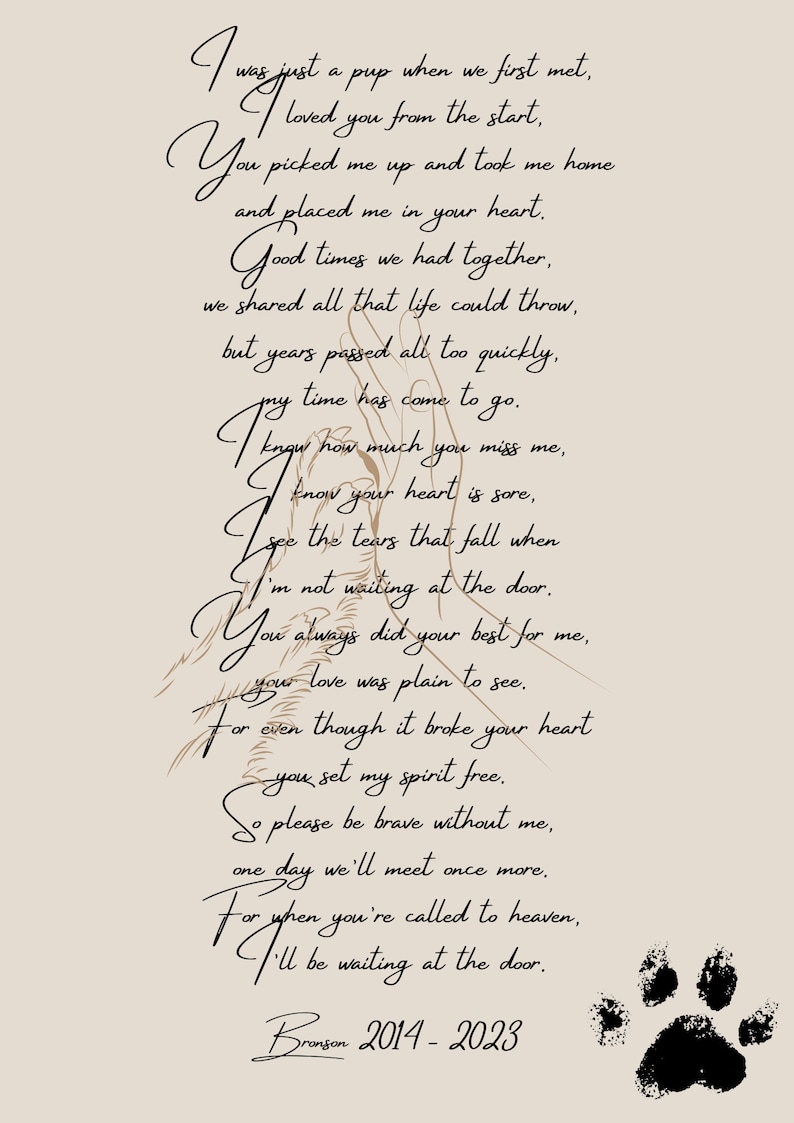 I was just a pup when we first met,
I loved you from the start,
You picked me up and took me home
and placed me in your heart.
Good times we had together,
we shared all that life could throw,
but years passed all too quickly,
my time has come to go.
I know how much you miss me,
I know your heart is sore,
I see the tears that fall when
I'm not waiting at the door.
You always did your best for me,
your love was plain to see.
For even though it broke your heart
you set my spirit free.
So please be brave without me,
one day we'll meet once more.
For when you're called to heaven,
I'll be waiting at the door.
Bronson 2014 - 2023